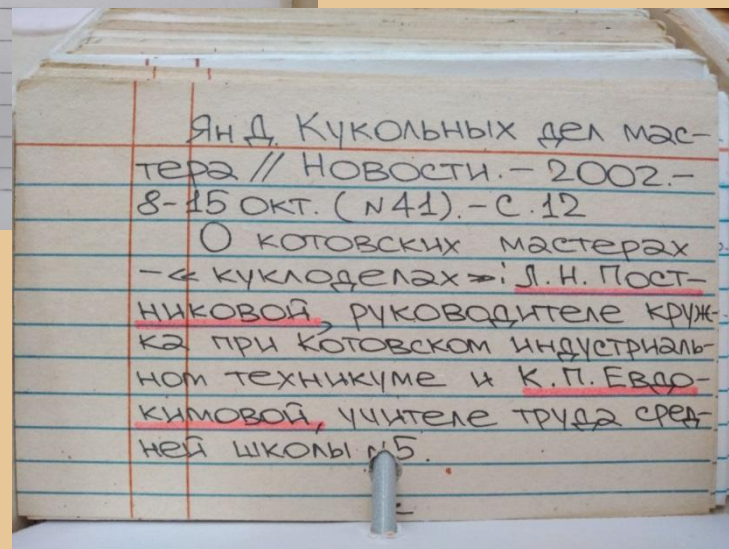 Ян Д. Кукольных дел мас-
тера // Новости. – 2002. –
8-15 окт. (N41). – С. 12
О котовских мастерах
– « куклоделах »: Л.Н. Пост-
никовой, руководителе круж-
ка при Котовском индустриаль-
ном техникуме и К.П. Евдо-
кимовой, учителе труда сред-
ней школы N5.